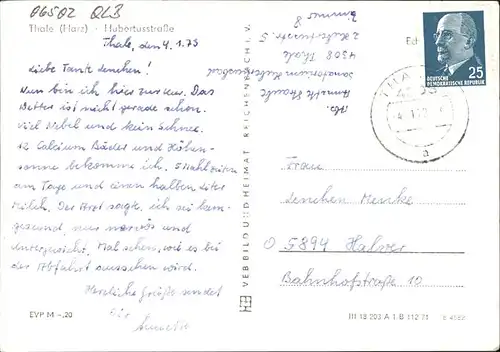 06502 QLB
Thale (Harz) · Hubertusstraße
Thale, den 4.1.73
Liebe Tante Lenchen!
Nun bin ich hier zur Kur. Das
Wetter ist nicht gerade schön.
Viel Nebel und kein Schnee.
12 Calcium Bäder und Höhen-
sonne bekomme ich. 5 Mahlzeiten
am Tage und einen halben Liter
Milch. Der Arzt sagte, ich sei kern-
gesund, nur nervös und
untergewicht. Mal sehen, wie es bei
der Abfahrt aussehen wird.
Herzliche Grüße sendet
Dir
Annette
EVP M -,20
VEB BILD UND HEIMAT REICHENBACH I. V.
Abs.
Annette
Sanatorium
4308 Thale
Zimmer 8
DEUTSCHE
DEMOKRATISCHE REPUBLIK
25
a
Frau
Lenchen Menke
5894 Halver
Bahnhofstraße 10
III 18 203 A 1 B 112 71